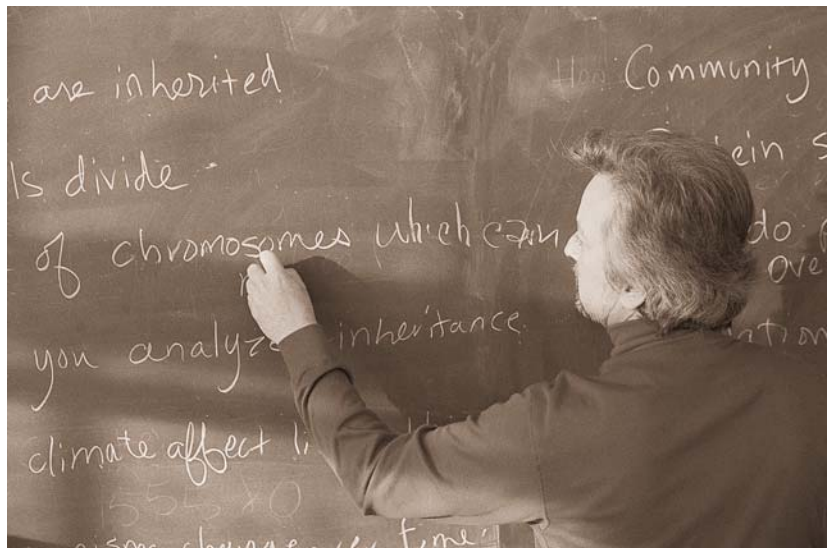 are inherited
ls divide
of chromosomes which can
you analyze inheritance
climate affect li
change
time
How Community
ein s
do
ove
ntion